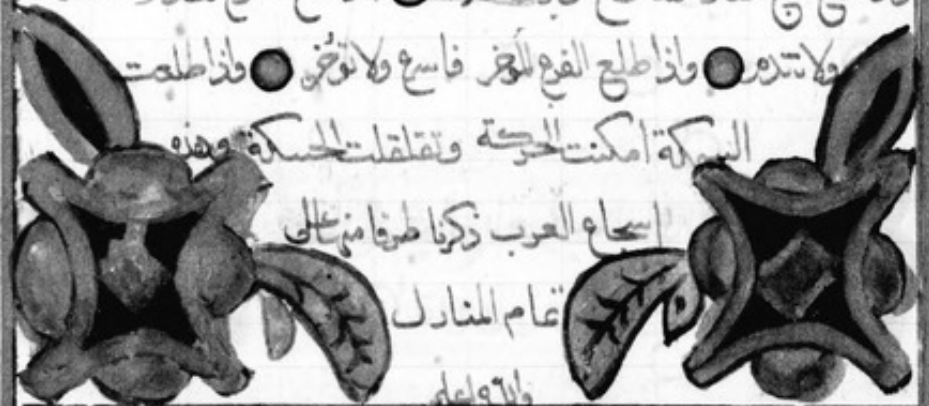 ولا تندم واذا طلع الفرع المؤخر فاسرع ولا تؤخر واذا طلعت
السمكة امكنت الحركة وتعلقت الحسكة وهذه
اسجاع العرب ذكرنا طرفا منها على
تمام المنازل
والله اعلم